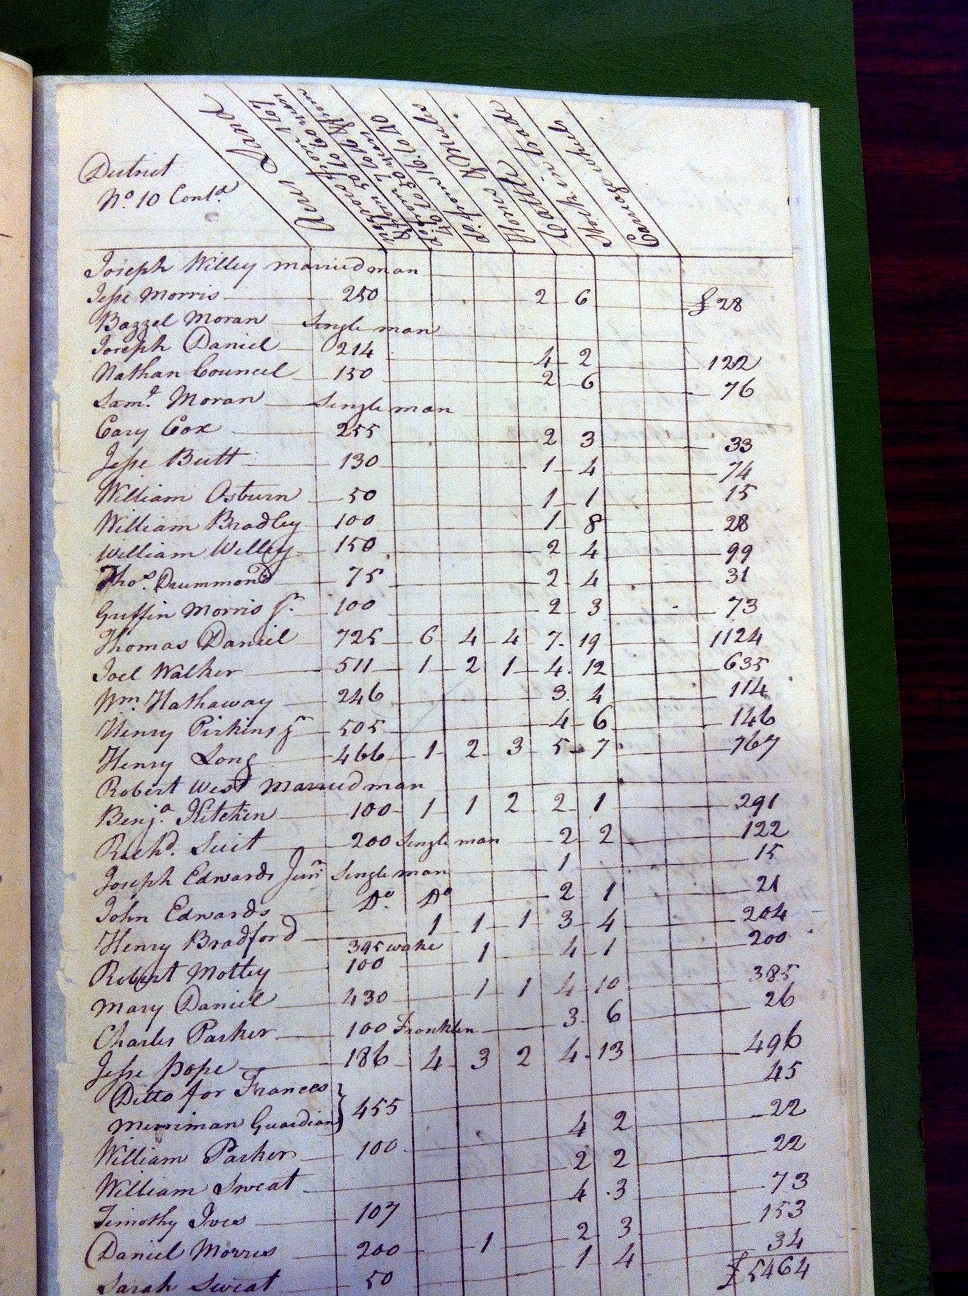 District
No. 10 Contd
Acres Land
Horses & Mules
Cattle
Stock in trade
Carriage wheels
Joseph Willey married man
Jesse Morris 250 2 6 £ 28
Bazzel Moran Single man
Joseph Daniel 214 4 2 122
Nathan Council 150 2 6 76
Saml. Moran Single man
Cary Cox 255 2 3 33
Jesse Butt 130 1 4 74
William Osburn 50 1 1 15
William Bradley 100 1 8 28
William Willey 150 2 4 99
Thos. Drummond 75 2 4 31
Griffin Morris Jr 100 2 3 73
Thomas Daniel 725 6 4 4 7 19 1124
Joel Walker 511 1 2 1 4 12 635
Wm. Hathaway 246 3 4 114
Henry Pirkins Jr 505 4 6 146
Henry Long 466 1 2 3 5 7 767
Robert West Married man
Benja. Kitchin 100 1 1 2 2 1 291
Richd. Suit 200 Single man 2 2 122
Joseph Edwards Junr Single man 1 15
John Edwards Do Do 2 1 21
Henry Bradford 1 1 1 3 4 204
Robert Motley 395 wake 100 1 4 1 200
Mary Daniel 430 1 1 4 10 385
Charles Parker 100 Franklin 3 6 26
Jesse Pope 186 4 3 2 4 13 496
Ditto for Frances 45
Merriman Guardian 455 4 2 22
William Parker 100 2 2 22
William Sweat 4 3 73
Timothy Ives 107 153
Daniel Morris 200 1 2 3 34
Sarah Sweat 50 1 4 £ 5464